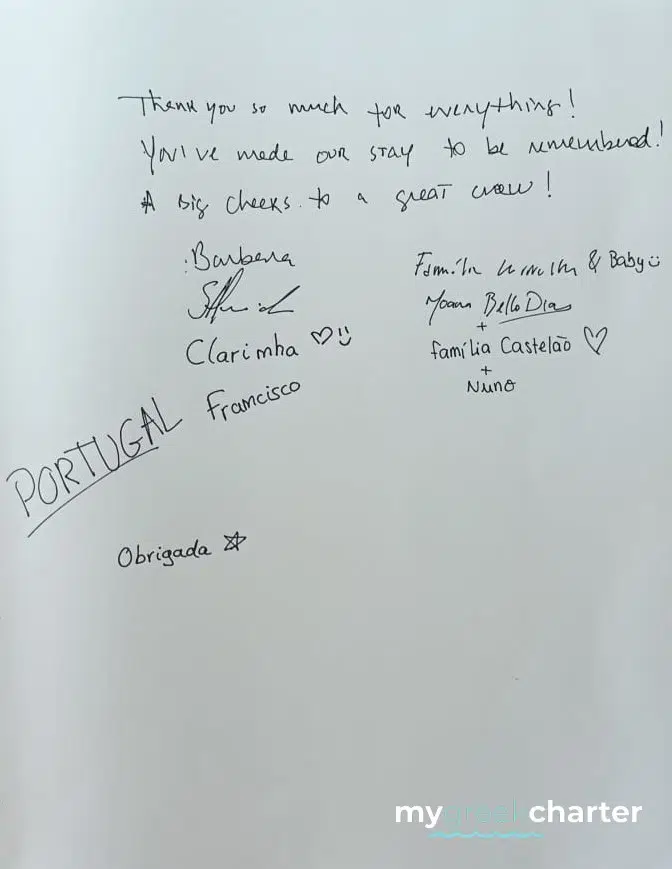 Thank you so much for everything!
You've made our stay to be remembered!
A big cheeks to a great crew!
Barbara
Clarinha ♡
Francisco
Família & Baby
Bello Dias
+
família Castelão ♡
+
Nuno
PORTUGAL
Obrigada ☆
mygreekcharter